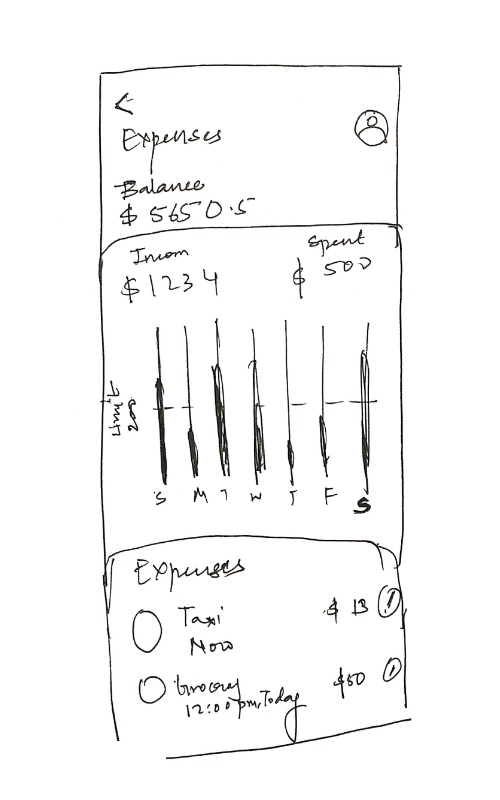 <
Expenses
Balance
$ 5650.5
Incom
$ 1234
Spent
$ 500
Limit
200
S M T W T F S
Expenses
Taxi
Now
$ 13
Grocery
12:00 pm, Today
$50